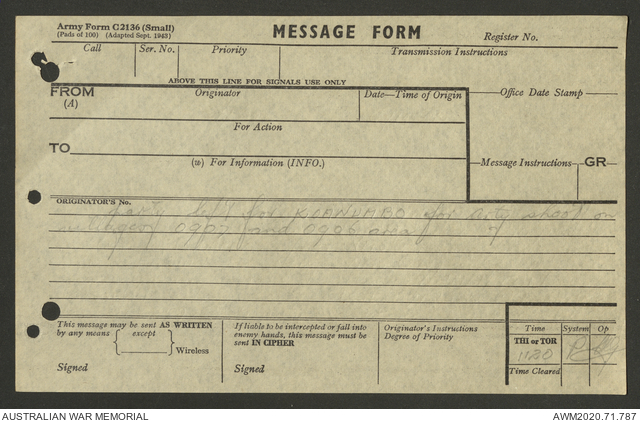 Army Form C2136 (Small)
(Pads of 100) (Adapted Sept. 1943)
MESSAGE FORM
Register No.
Call
Ser. No.
Priority
Transmission Instructions
ABOVE THIS LINE FOR SIGNALS USE ONLY
FROM
(A)
Originator
Date—Time of Origin
Office Date Stamp
For Action
TO
(w) For Information (INFO.)
Message Instructions
GR
ORIGINATOR'S No.
party left for for arty shoot on
0907 and 0906 area
This message may be sent AS WRITTEN
by any means except
Wireless
Signed
If liable to be intercepted or fall into
enemy hands, this message must be
sent IN CIPHER
Signed
Originator's Instructions
Degree of Priority
Time System Op
THI or TOR
1120
Time Cleared
AUSTRALIAN WAR MEMORIAL
AWM2020.71.787